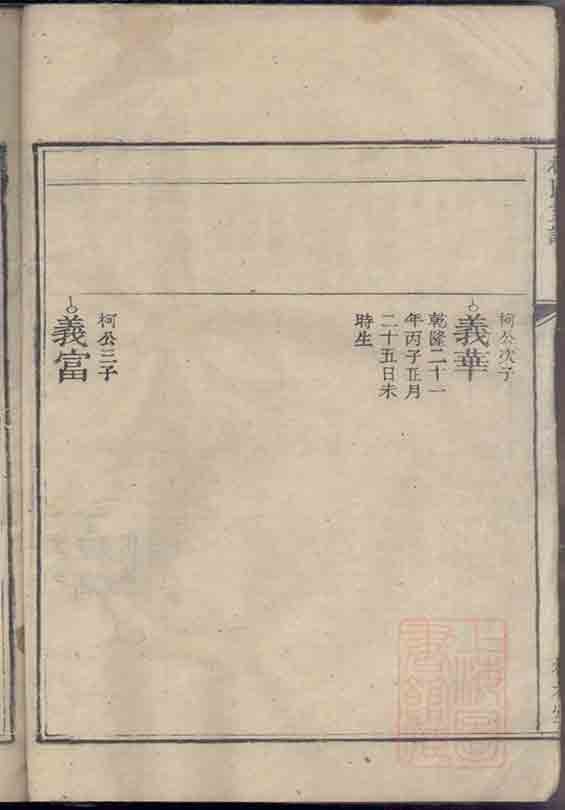 柯公次子
義華
乾隆二十一
年丙子五月
二十五日未
時生
柯公三子
義富
上海圖
書館藏